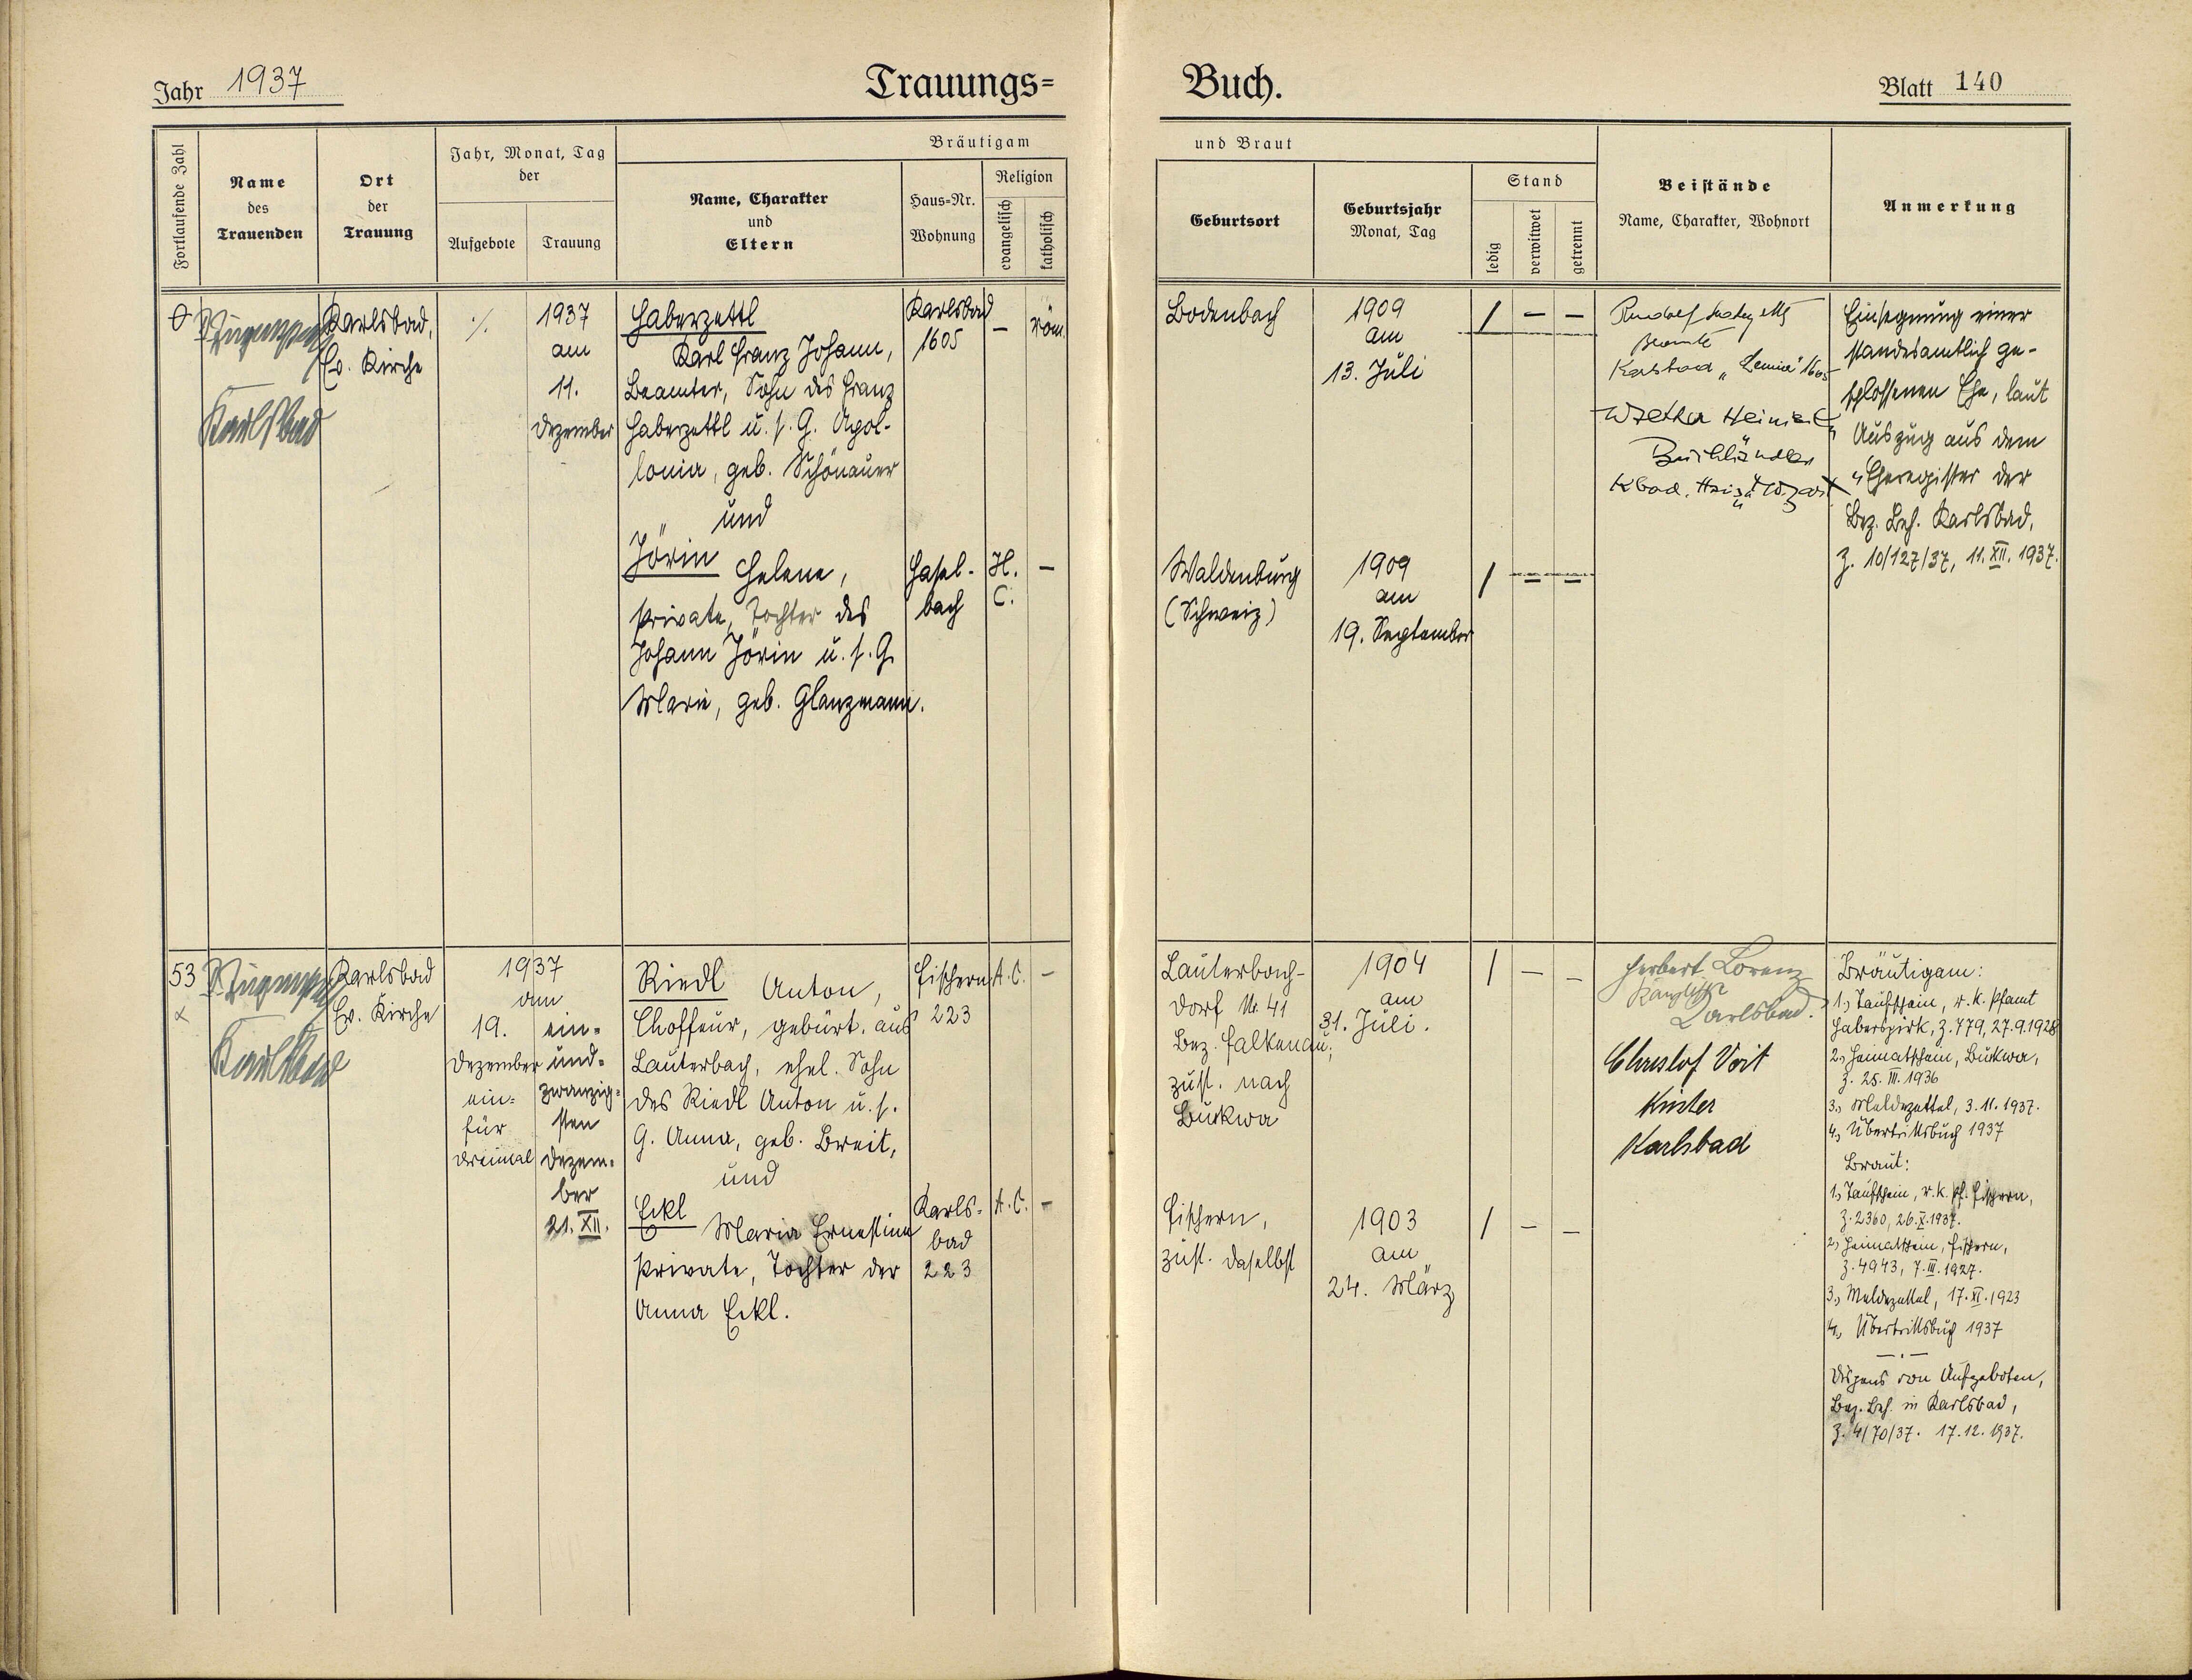 Jahr 1937
Trauungs=
Buch.
Blatt 140
Fortlaufende Zahl
Name
des
Trauenden
Ort
der
Trauung
Jahr, Monat, Tag
der
Aufgebote
Trauung
Bräutigam
und Braut
Name, Charakter
und
Eltern
Haus=Nr.
Wohnung
Religion
evangelisch
katholisch
Geburtsort
Geburtsjahr
Monat, Tag
Stand
ledig
verwitwet
getrennt
Beistände
Name, Charakter, Wohnort
Anmerkung
0
Karlsbad
Karlsbad,
Ev. Kirche
./.
1937
am
11.
Dezember
Haberzettl
Karl Franz Johann,
Beamter, Sohn des Franz
Haberzettl u. s. G. Apol-
lonia, geb. Schönauer
und
Jörin Helene,
Private, Tochter des
Johann Jörin u. s. G.
Marie, geb. Glanzmann.
Karlsbad
1605
– röm.
Hasel-
bach
H.
C.
–
Bodenbach
1909
am
13. Juli
/ – –
Waldenburg
(Schweiz)
1909
am
19. September
/ – –
Rudolf
Beamte
Karlsbad 1605
Buchhändler
Kbad.
Einsegnung einer
standesamtlich ge-
schlossenen Ehe, laut
Auszug aus dem
Eheregister der
Bez. Beh. Karlsbad,
Z. 10/127/37, 11. XII. 1937.
53
x
Karlsbad
Karlsbad
Ev. Kirche
1937
am
19.
Dezember
ein-
für
dreimal
ein=
und=
zwanzig=
sten
Dezem=
ber
21. XII.
Riedl Anton,
Choffeur, gebürt. aus
Lauterbach, ehel. Sohn
des Riedl Anton u. s.
G. Anna, geb. Breit,
und
Eckl Maria Ernestine
Private, Tochter der
Anna Eckl.
Fischern
223
A. C. –
Karls-
bad
223
A. C. –
Lauterbach-
dorf Nr. 41
Bez. Falkenau,
zust. nach
Buckwa
1904
am
31. Juli.
/ – –
Fischern,
zust. daselbst
1903
am
24. März
/ – –
Herbert Lorenz
Kanzlist
Karlsbad.
Christof Voit
Küster
Karlsbad
Bräutigam:
1., Taufschein, r. k. Pfarramt
Haberspirk, Z. 779, 27.9.1928
2., Heimatschein, Buckwa,
Z. 25. III. 1936
3., Meldezettel, 3.11.1937.
4., Übertrittsbuch 1937
Braut:
1., Taufschein, r. k. Pf. Fischern,
Z. 2360, 26. X. 1937.
2., Heimatschein, Fischern,
Z. 4943, 7. III. 1927.
3., Meldezettel, 17. XI. 1923
4., Übertrittsbuch 1937
– . –
Dispens von Aufgeboten,
Bez. Beh. in Karlsbad,
Z. 4/70/37. 17.12.1937.